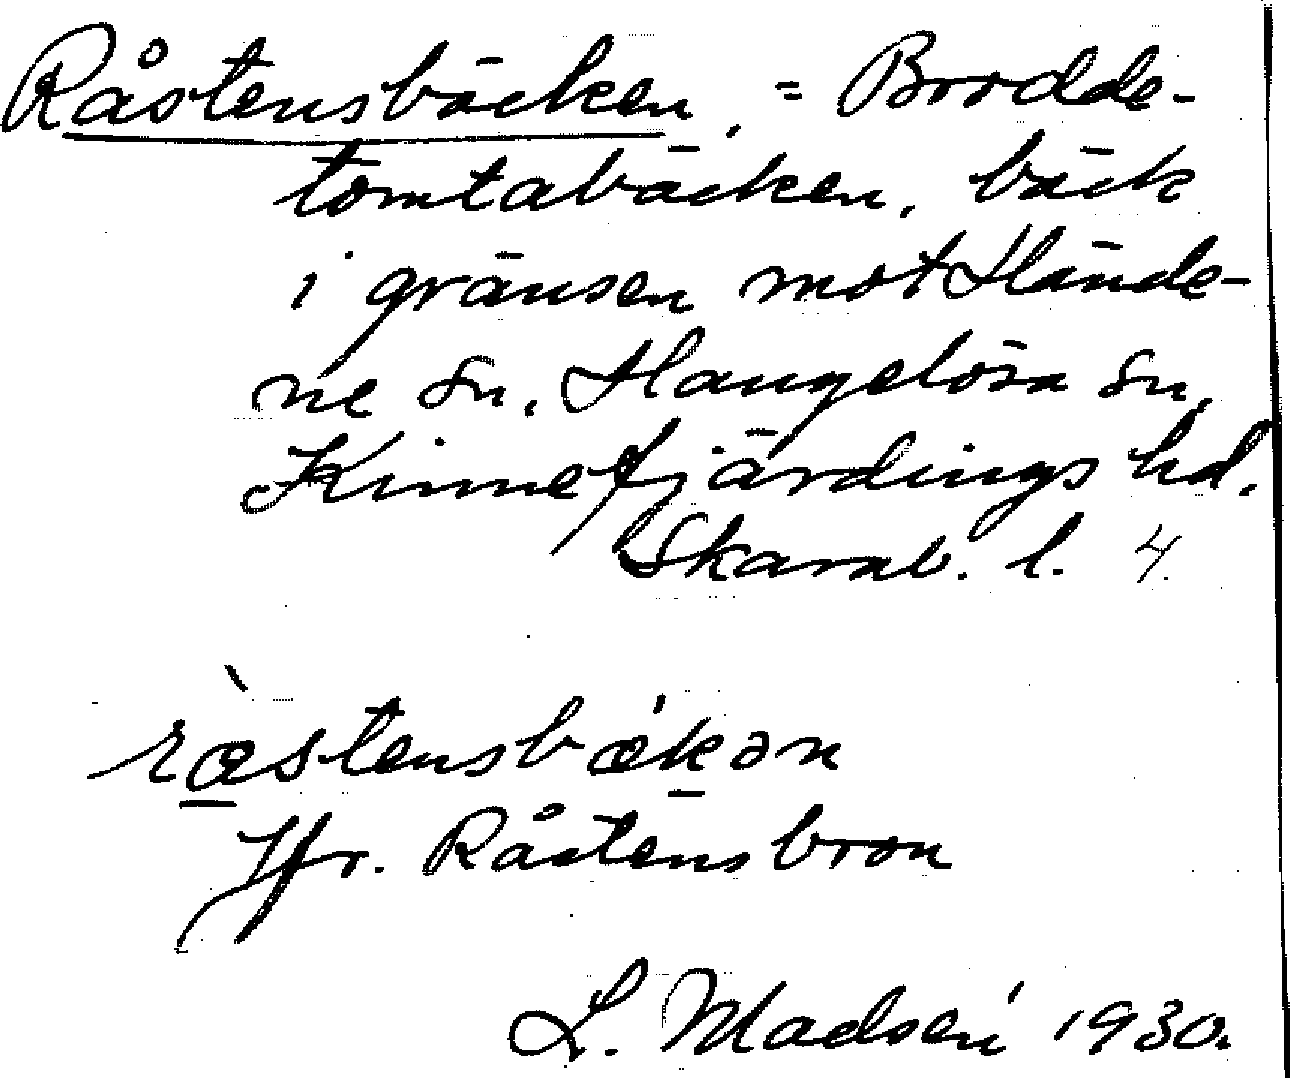 Råstensbäcken, = Brodde-
tomtabäcken, bäck
i gränsen mot Hände-
ne sn, Hangelösa sn,
Kinnefjärdings hd.
Skarab. l. 4.
ræ̀stensbǽkən
Jfr. Råstensbron
L. Madsén 1930.